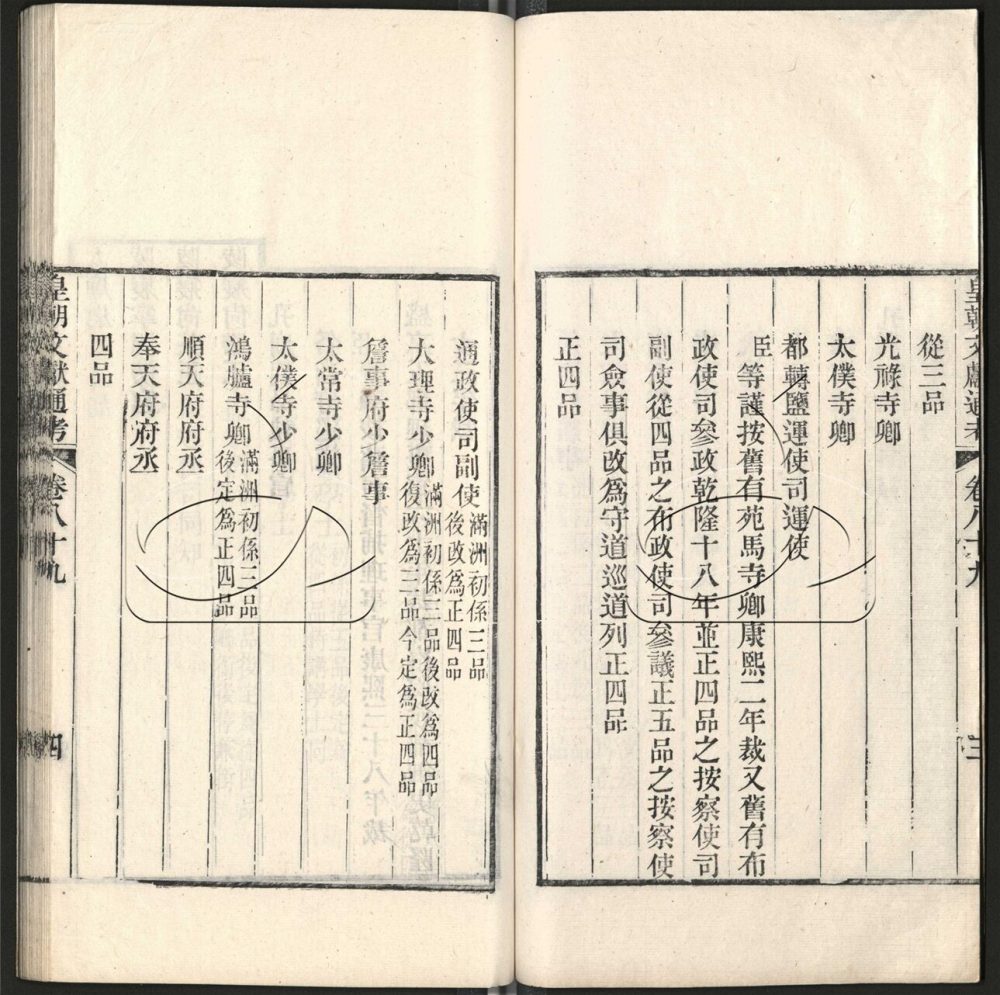 皇朝文獻通考 卷八十九 三
從三品
光祿寺卿
太僕寺卿
都轉鹽運使司運使
臣等謹按舊有苑馬寺卿康熙二年裁又舊有布
政使司參政乾隆十八年並正四品之按察使司
副使從四品之布政使司參議正五品之按察使
司僉事俱改爲守道巡道列正四品
正四品
通政使司副使滿洲初係三品
後改爲正四品
大理寺少卿滿洲初係三品後改爲四品
復改爲三品今定爲正四品
詹事府少詹事
太常寺少卿
太僕寺少卿
鴻臚寺卿滿洲初係三品
後定爲正四品
順天府府丞
奉天府府丞
四品
皇朝文獻通考 卷八十九 四